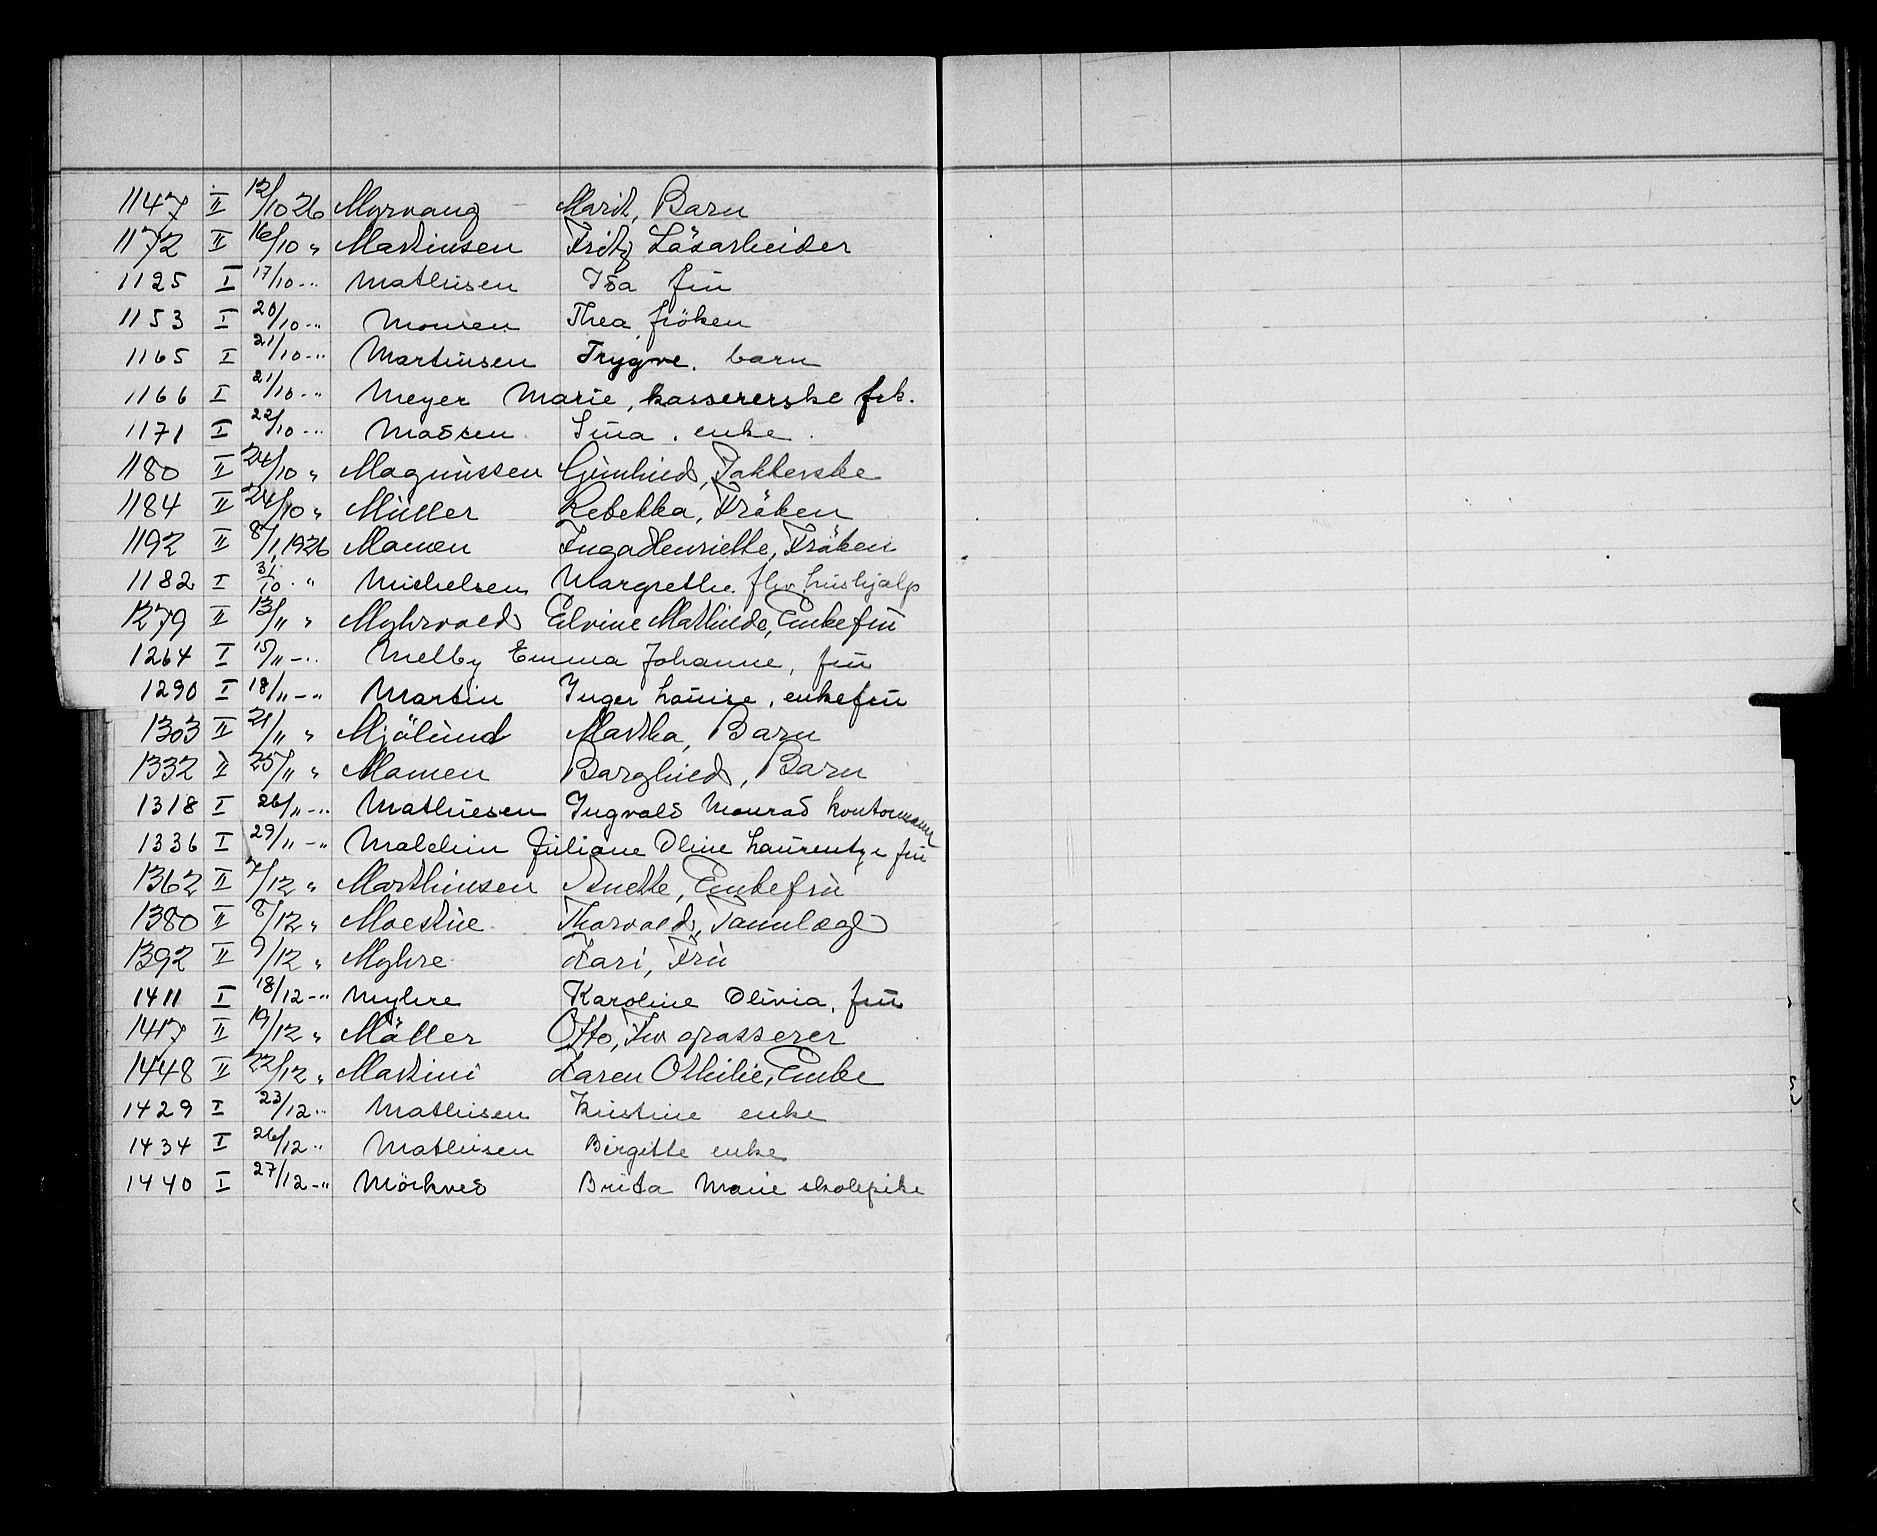 1147 II 12/10 26 Myrvang Marit, Barn
1172 II 16/10 " Martinsen Fritz Løsarbeider
1125 I 17/10 -" Mathisen Isa frü
1153 I 20/10 -" Monsen Thea fröken
1165 I 21/10 -" Martinsen Trygve. barn
1166 I 21/10 -" Meyer Marie, kassererske frk.
1171 I 22/10 -" Madsen Sina. enke.
1180 II 24/10 " Magnüssen Günhild, Pakkerske
1184 II 24/10 " Müller Rebekka, Fröken
1192 II 8/1, 1926 Mamen Inga Henriette, Fröken
1182 I 31/10 " Michelsen Margrethe. fhv. hüshjælp
1279 II 13/11 " Myhrvold Elvine Mathilde, Enkefrü
1264 I 15/11 -" Melby Emma Johanne, frü
1290 I 18/11 -" Martin Inger Louise, enkefrü
1303 II 21/11 " Mjölünd Martha, Barn
1332 II 25/11 " Mamen Borghild, Barn
1318 I 26/11 -" Mathiesen Ingvald Monrad kontormann
1336 I 29/11 -" Malchin Jüliane Oline Laürentze frü
1362 II 7/12 " Marthinsen Anette, Enkefrü
1380 II 8/12 " Moestüe Thorvald, Tannlæge
1392 II 9/12 " Myhre Kari, Frü
1411 I 18/12 -" Myhre Karoline Olivia, frü
1417 II 19/12 " Möller Otto, Fhv grosserer
1448 II 22/12 " Martini Karen Othilie, Enke
1429 I 23/12 " Mathisen Kristine enke
1434 I 26/12 " Mathisen Birgitte enke
1440 I 27/12 -" Mörkved Brita Marie skolepike